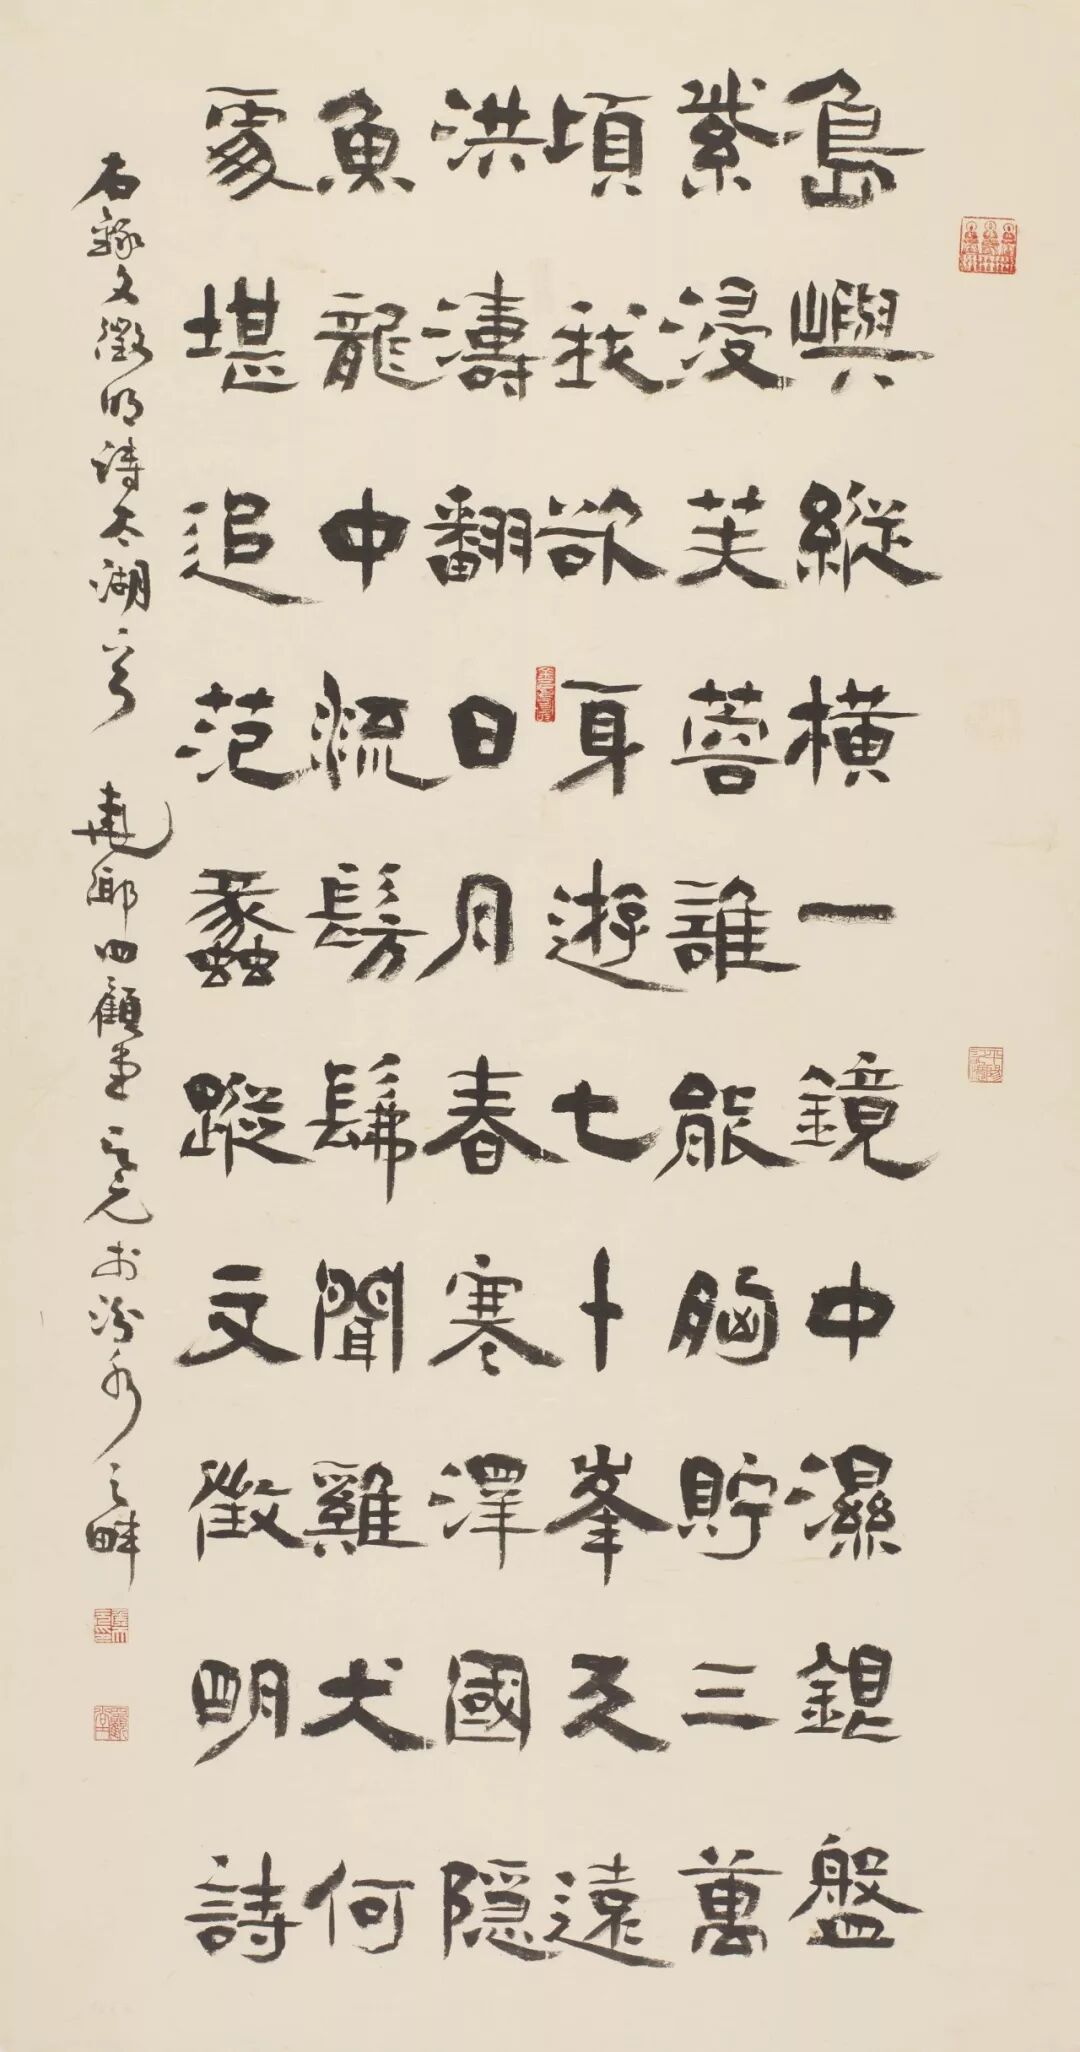 島嶼縱橫一鏡中濕銀盤
紫浸芙蓉誰能胸貯三萬
頃我欲身遊七十峯天遠
洪濤翻日月春寒澤國隱
魚龍中流髣髴聞雞犬何
處堪追范蠡蹤文徵明詩
右錄文徵明詩太湖 顧堂 汾水之畔